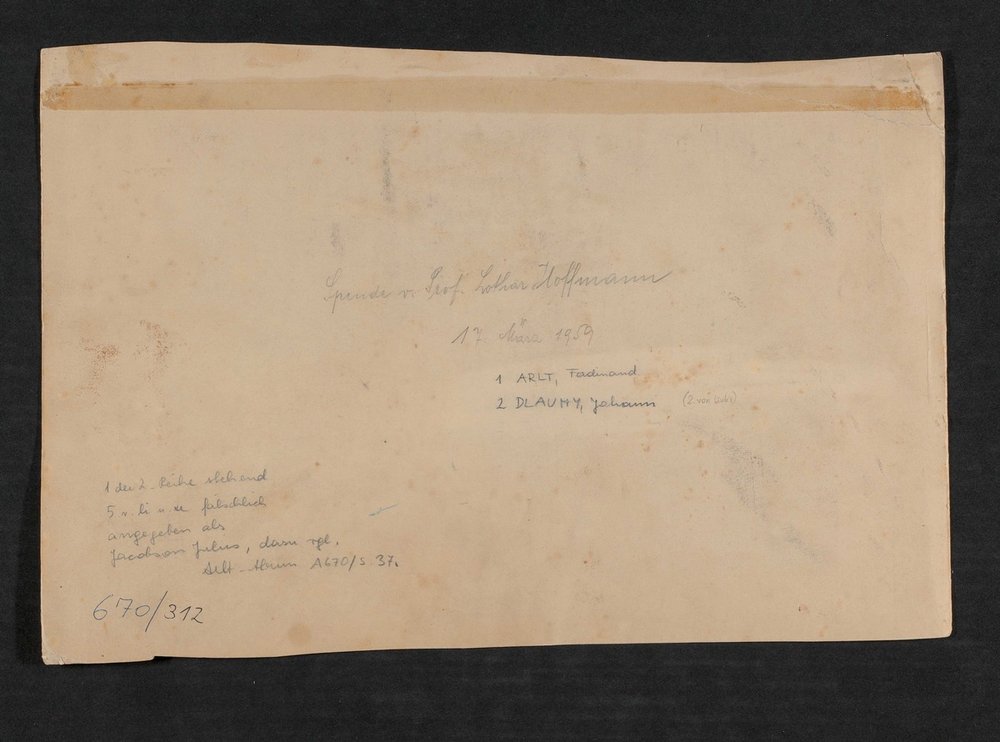 Spende v. Prof. Lothar Hoffmann
17. März 1959
1 ARLT, Ferdinand
2 DLAUHY, Johann (2. von links)
1 der 2. Reihe stehend
5 v. li u. re fälschlich
angegeben als
Jacobson Julius, dazu vgl.
Arlt-Album A670/S 37.
670/312